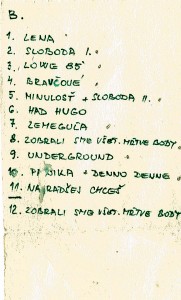 B.
1. LENA
2. SLOBODA I.
3. LÓWE 85
4. BRAVČOVÉ
5. MINULOSŤ + SLOBODA II.
6. HAD HUGO
7. ZEMEGUĽA
8. ZOBRALI SME VŠET. MŔTVE BODY
9. UNDERGROUND
10. + DENNO DENNE
11. NAJRADŠEJ CHCEŠ
12. ZOBRALI SME VŠET. MŔTVE BODY